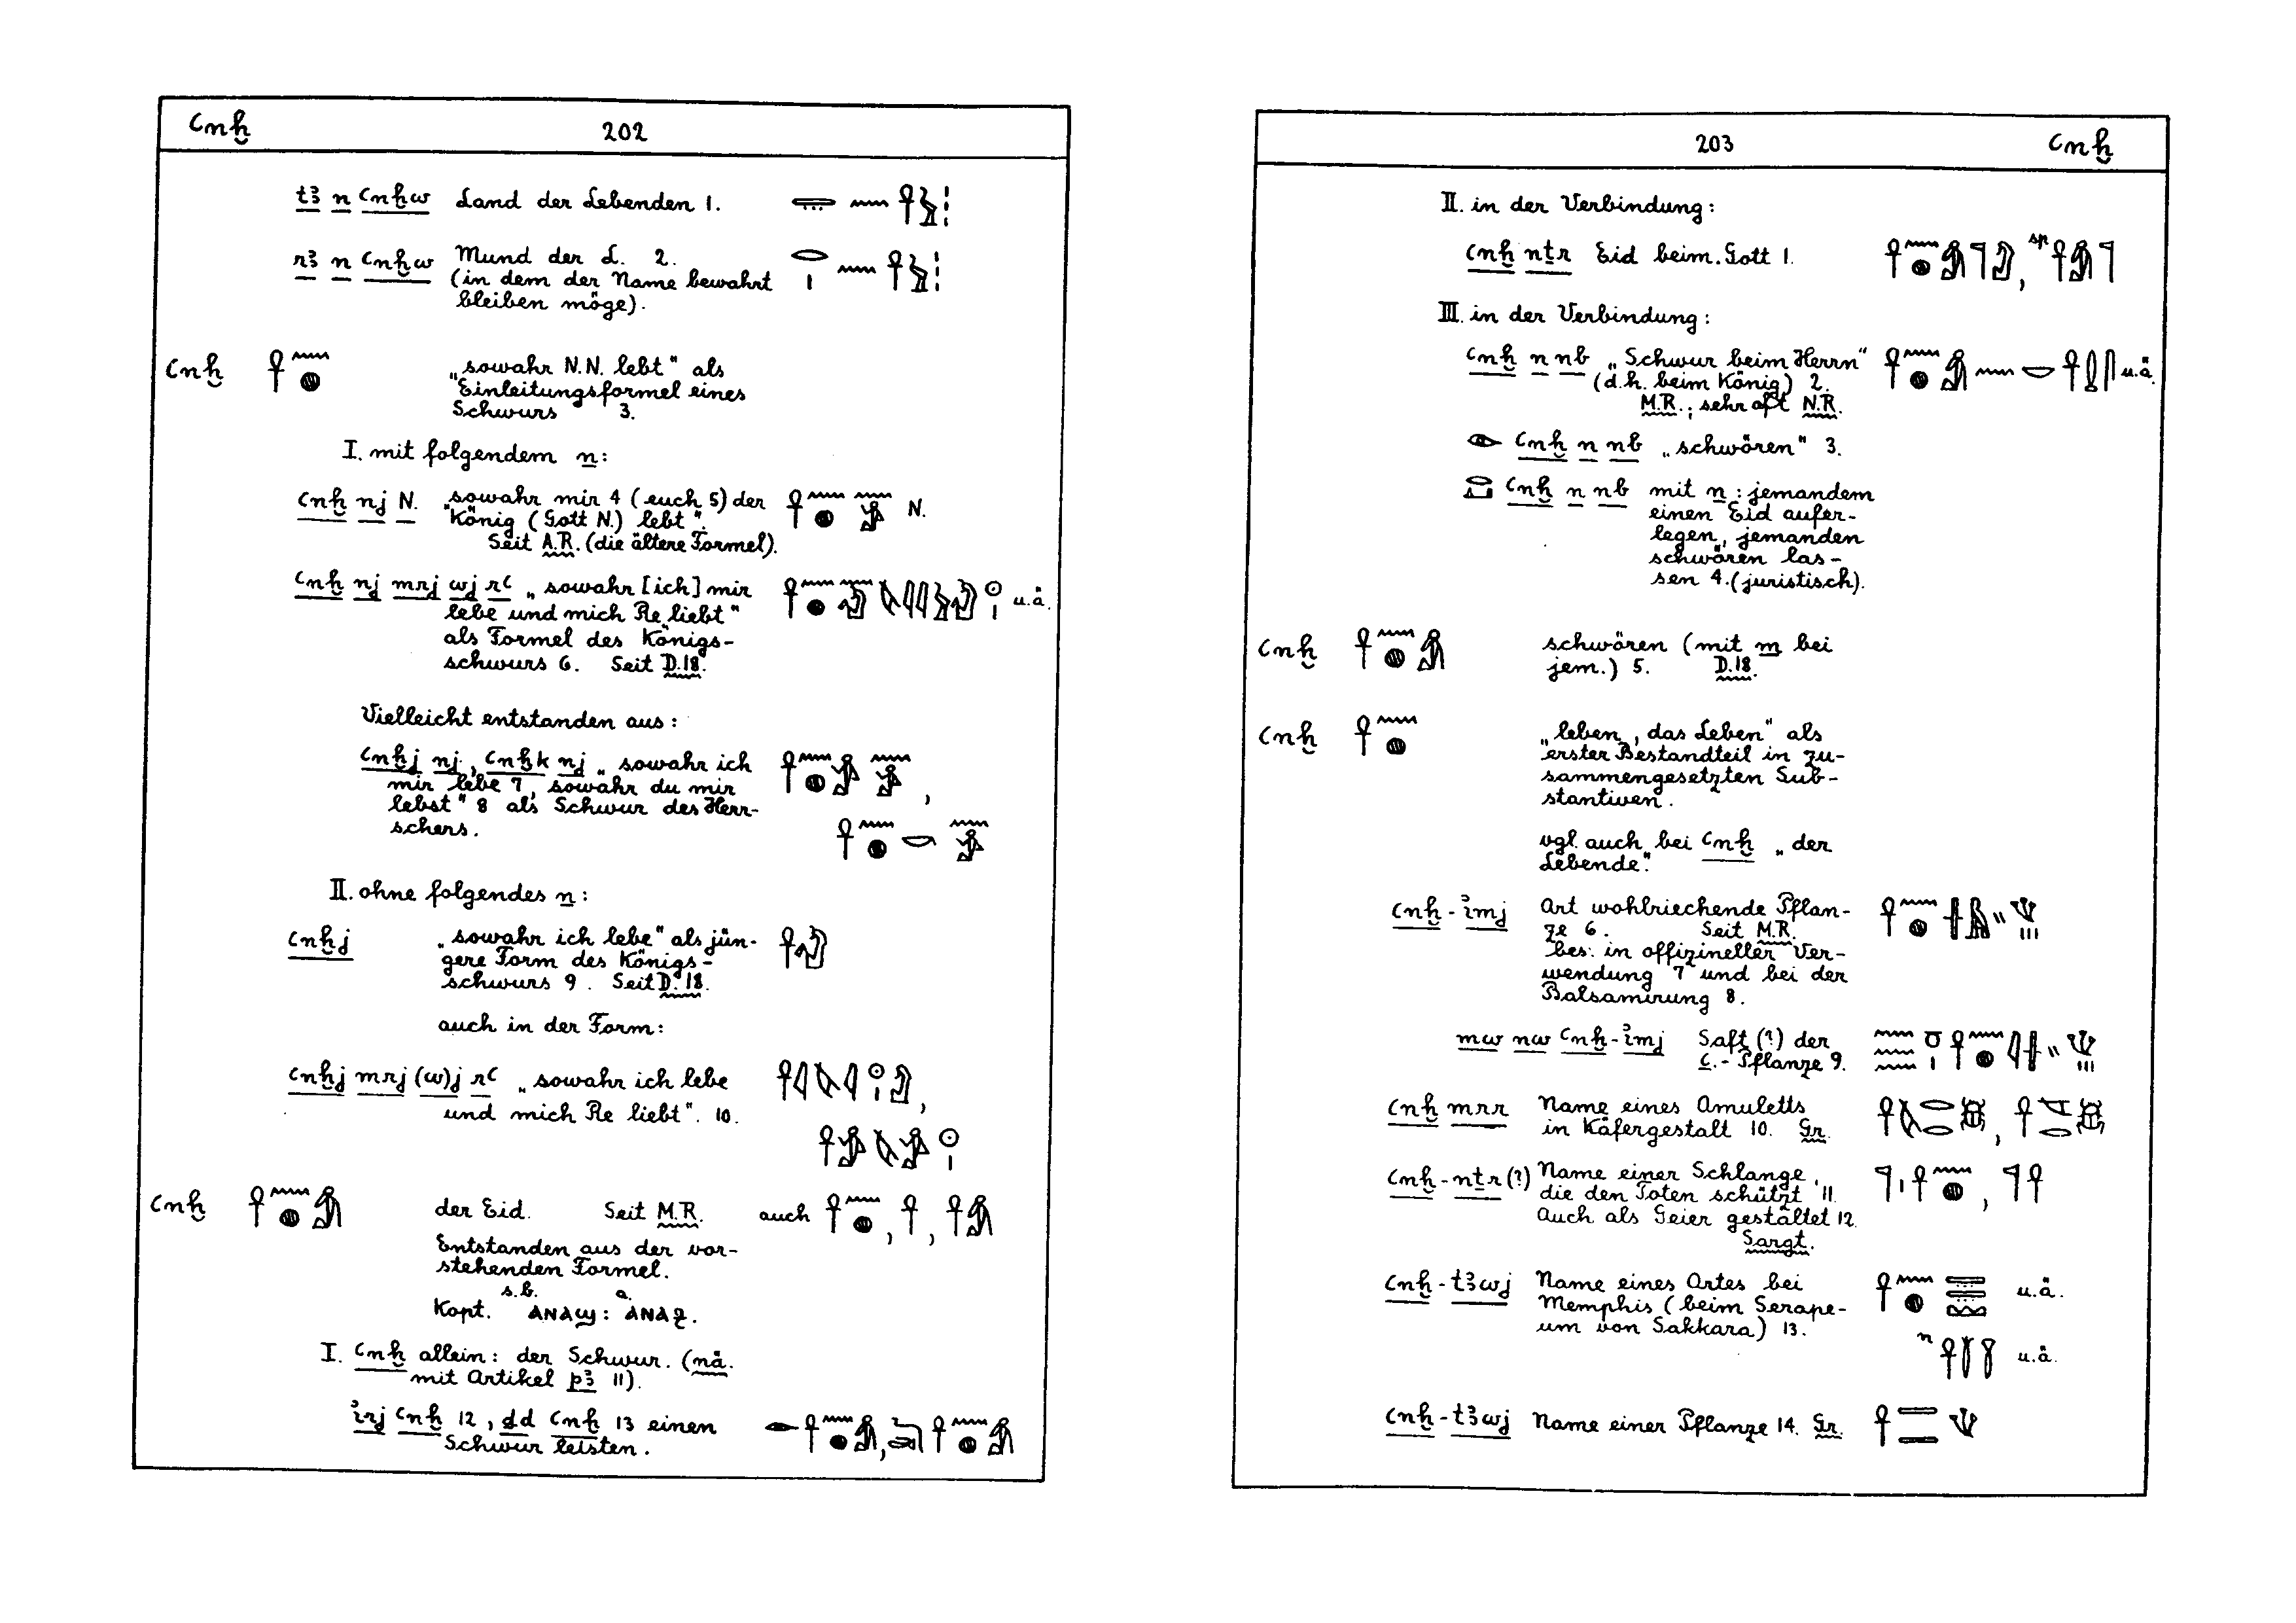 ꜥnḫ 202
tꜣ n ꜥnḫw Land der Lebenden 1.
rꜣ n ꜥnḫw Mund der L. 2.
(in dem der Name bewahrt
bleiben möge).
ꜥnḫ „sowahr N.N. lebt“ als
Einleitungsformel eines
Schwurs 3.
I. mit folgendem n:
ꜥnḫ nj N. „sowahr mir 4 (euch 5) der N.
König (Gott N.) lebt“.
Seit A.R. (die ältere Formel).
ꜥnḫ nj mrj wj rꜥ „sowahr [ich] mir u.ä.
lebe und mich Re liebt“
als Formel des Königs-
schwurs 6. Seit D.18.
Vielleicht entstanden aus:
ꜥnḫj nj, ꜥnḫk nj „sowahr ich
mir lebe 7, sowahr du mir
lebst“ 8 als Schwur des Herr-
schers.
II. ohne folgendes n:
ꜥnḫj „sowahr ich lebe“ als jün-
gere Form des Königs-
schwurs 9. Seit D.18.
auch in der Form:
ꜥnḫj mrj (w)j rꜥ „sowahr ich lebe
und mich Re liebt“. 10.
ꜥnḫ der Eid. Seit M.R. auch
Entstanden aus der vor-
stehenden Formel.
s.b. a.
Kopt. ⲁⲛⲁϣ: ⲁⲛⲁⳉ.
I. ꜥnḫ allein: der Schwur. (nä.
mit Artikel pꜣ 11).
i҆rj ꜥnḫ 12, ḏd ꜥnḫ 13 einen
Schwur leisten.
203 ꜥnḫ
II. in der Verbindung:
ꜥnḫ nṯr Eid beim Gott 1. sp
III. in der Verbindung:
ꜥnḫ n nb „Schwur beim Herrn“ u.ä.
(d.h. beim König) 2.
M.R.; sehr oft N.R.
ꜥnḫ n nb „schwören“ 3.
ꜥnḫ n nb mit n: jemandem
einen Eid aufer-
legen, jemanden
schwören las-
sen 4. (juristisch).
ꜥnḫ schwören (mit m bei
jem.) 5. D.18.
ꜥnḫ „leben, das Leben“ als
erster Bestandteil in zu-
sammengesetzten Sub-
stantiven.
vgl. auch bei ꜥnḫ „der
Lebende“.
ꜥnḫ-i҆mj Art wohlriechende Pflan-
ze 6. Seit M.R.
bes. in offizineller Ver-
wendung 7 und bei der
Balsamirung 8.
mw nw ꜥnḫ-i҆mj Saft (?) der
ꜥ.-Pflanze 9.
ꜥnḫ mrr Name eines Amuletts
in Käfergestalt 10. Gr.
ꜥnḫ-nṯr (?) Name einer Schlange,
die den Toten schützt 11.
Auch als Geier gestaltet 12.
Sargt.
ꜥnḫ-tꜣwj Name eines Ortes bei u.ä.
Memphis (beim Serape-
um von Sakkara) 13.
n u.ä.
ꜥnḫ-tꜣwj Name einer Pflanze 14. Gr.